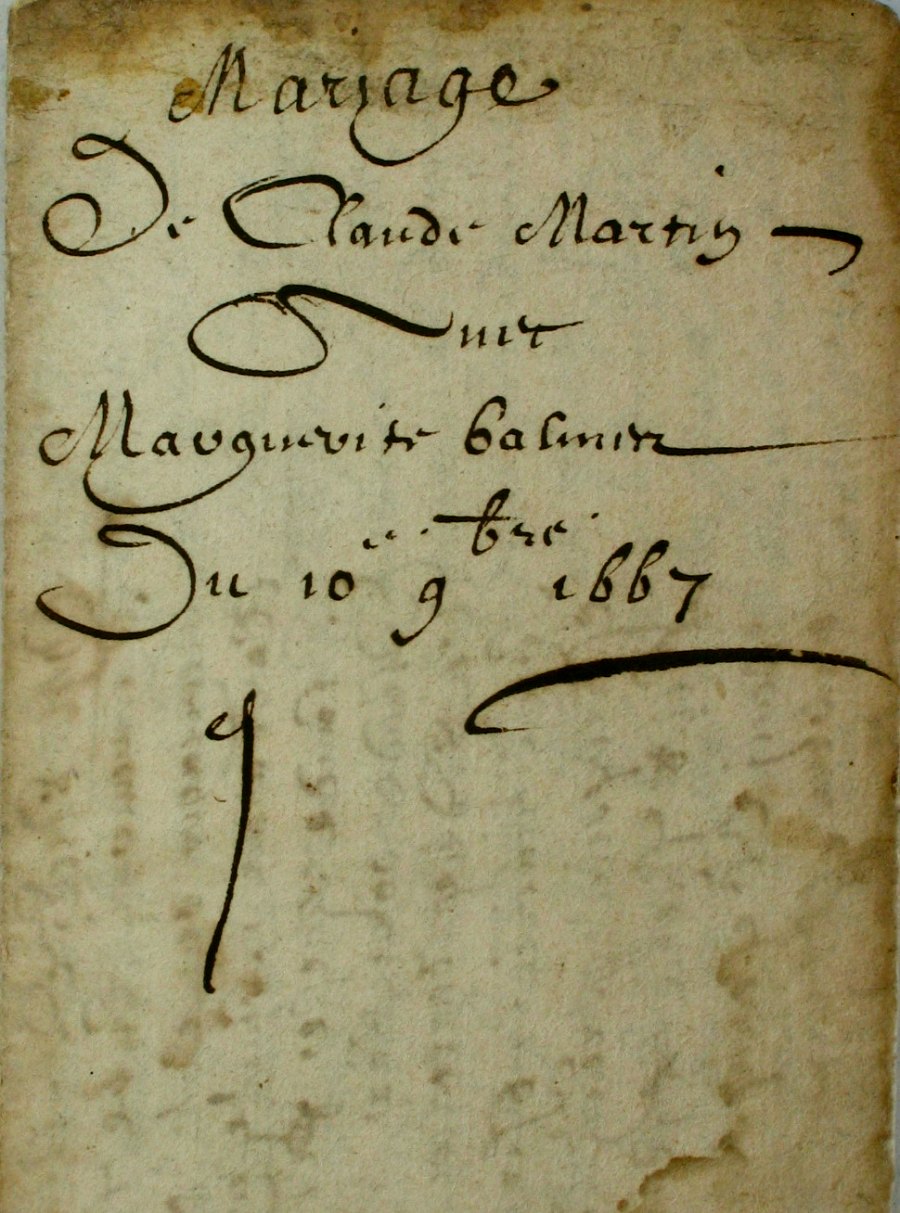 Marjage
De Claude Martin
Auec
Marguerite balmier
Du 10e 9bre 1667